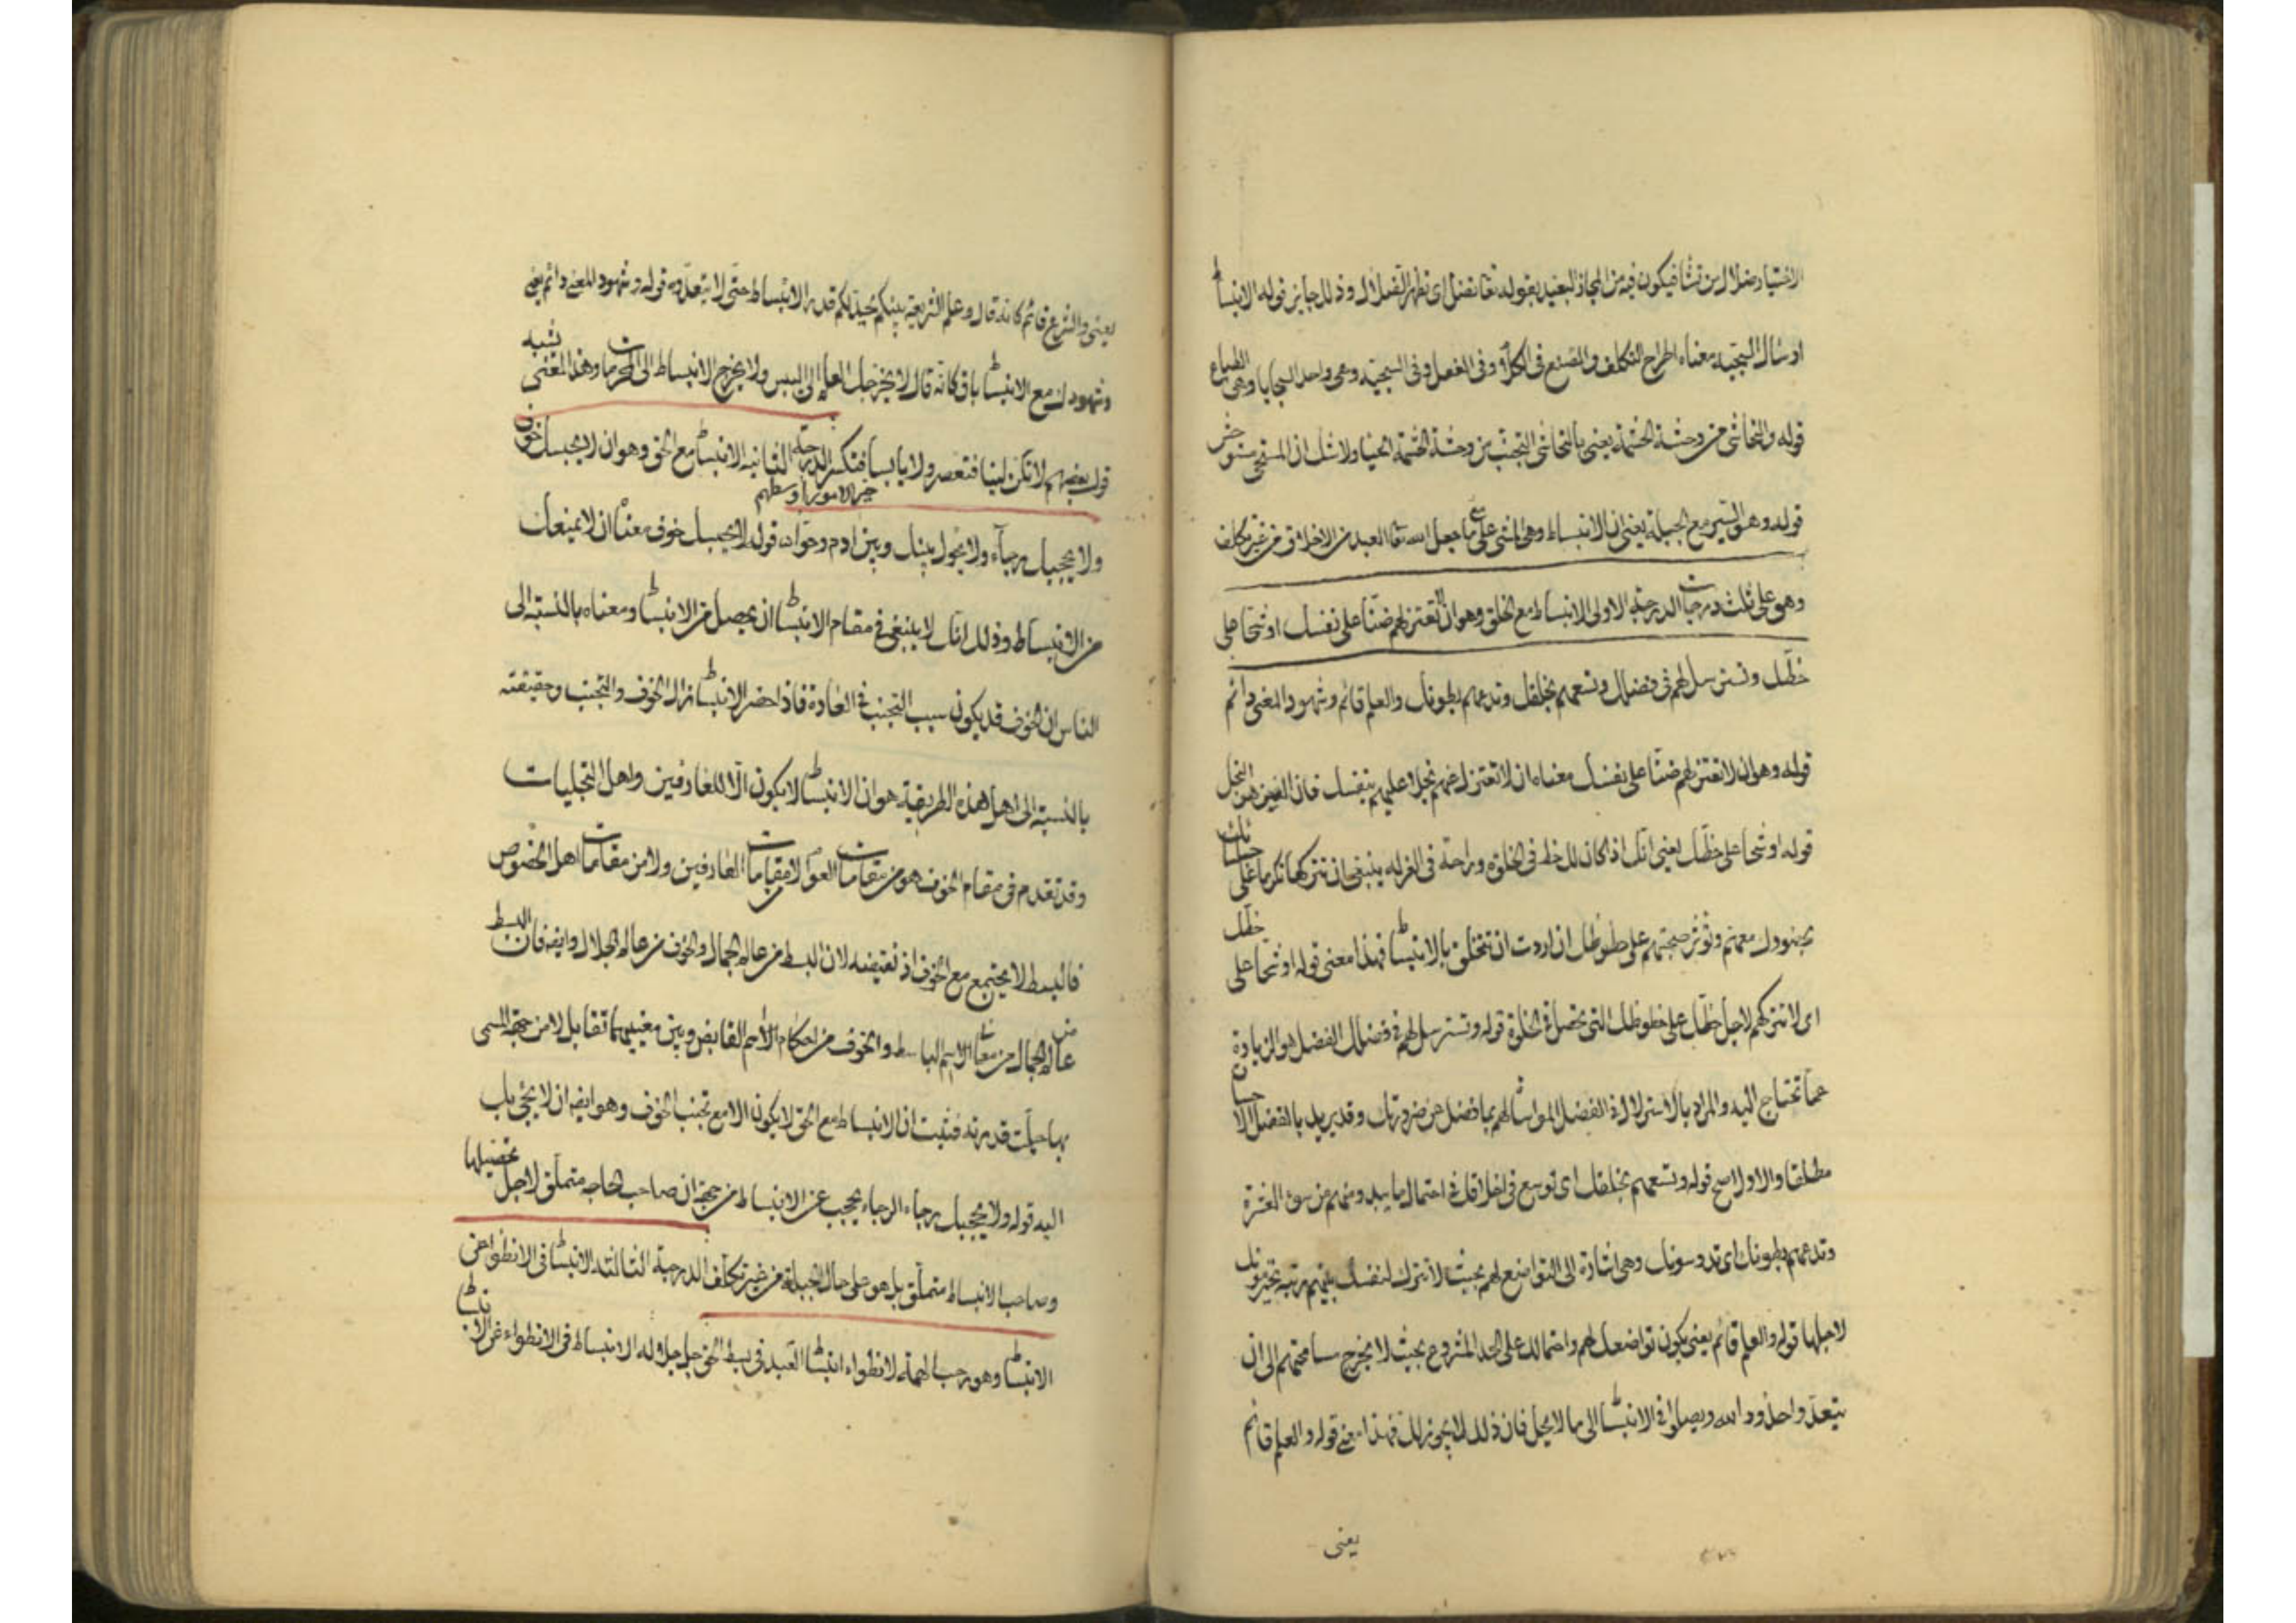 الاختيار ضلال من تشا فيكون فيه من المجاز البعيد بقوله تعا تضل اى تظهر الضلال وذلك جايز قوله الانبسا ط
ارسال السجية معناه اطراح التكلف والتصنع فى الكلام وفى الفعل وفى السجية وهى واحد السجايا وهى الطباع
قوله والتحاشى من وحشة الحشمة يعنى بالتحاشى التجنب من وحشة الحشمة الحيا ولا شك ان المستحى مستوحش
قوله وهو السير مع الجبلة يعنى ان الانبساط وهى المشى مع على ما جعل الله تعا العبد من الاخلاق من غير تكلف
وهو على ثلث درجات الدرجة الاولى الانبساط مع الخلق وهو ان لا تعتزلهم ضنا على نفسك او شحا على
حظك وتسترسل لهم فى فضلك وتسعهم بخلقك وتدعهم يطونك والعلم قائم وشهود المعنى دائم
قوله وهو ان لا تعتزلهم ضنا على نفسك معناه ان لا تعتزل عنهم بخلا عليهم بنفسك فان الضن هو البخل
قوله او شحا على حظك يعنى انك اذا كان لك حظ فى الخلوة وراحة فى العزلة ينبغى ان تتركها تكرما على
بحضورك معهم وتؤثر صحبتهم على حظوظك ان اردت ان تتخلق بالانبساط فهذا معنى قوله او شحا على حظك
اى لا تتركهم لاجل حظك على حظوظك التى تحصل فى الخلوة قوله وتسترسل لهم فى فضلك الفضل هو الزيادة
عما تحتاج اليه والمراد بالاسترسال فى الفضل المواساة لهم بما فضل عن ضرورتك وقد يريد بالفضل الاحسان
مطلقا والاول اصح قوله وتسعهم بخلقك اى توسع فى اخلاقك فى احتمال ما يبدو منهم من سوء العشرة
وتدعهم يطونك اى تدوسونك وهى اشارة الى التواضع لهم بحيث لا تترك لنفسك بينهم رتبة تحترمونك
لاجلها قوله والعلم قائم يعنى يكون تواضعك لهم واحتمالك على الحد المشروع بحيث لا يخرج مسامحتهم الى ان
يتعدوا حدود الله ويصلوا فى الانبساط الى ما لا يحل فان ذلك لا يجوز لك فهذا معنى قوله والعلم قائم
يعنى
يعنى والشرع قائم كانه قال وعلم الشريعة بينكم يحد لكم قدر الانبساط حتى لا يتعدوه قوله وشهود المعنى دائم يعنى
وشهودك مع الانبساط باق كانه قال لا يخرجك العلم الى اليبس ولا يخرج الانبساط الى المحرمات وهذا المعنى يشبه
قول بعضهم لا تكن لينا فتعصر ولا يابسا فتكسر الدرجة الثانية الانبساط مع الحق وهو ان لا يحبسك خوف
خير الامور اوسطهم
ولا يحجبك رجآء ولا يحول بينك وبين ادم وحواء قوله لا يحبسك خوف معناه ان لا يمنعك
من الانبساط وذلك انك لا ينبغى فى مقام الانبساط ان يحصل من الانبساط ومعناه بالنسبة الى
الناس ان الخوف قد يكون سبب التجنب فى العادة فاذا حضر الانبساط زال الخوف والتجنب وحقيقته
بالنسبة الى اهل هذه الطريقة هو ان الانبساط لا يكون الا للعارفين واهل التجليات
وقد تقدم فى مقام الخوف هو من مقامات العوام لا من مقامات العارفين ولا من مقامات اهل الخصوص
فالبسط لا يجتمع مع الخوف اذ نقيضه لان البسط من عالم الجمال والخوف من عالم الجلال وايضا فان البسط
من عالم الجمال من معانى الاسم الباسط والخوف من احكام الاسم القابض وبين معنيهما تقابل لا من جهة المسمى
بها جلت قدرته فثبت ان الانبساط مع الحق لا يكون الا مع تجنب الخوف وهو ايضا ان لا يجى باب
اليه قوله ولا يحجبك رجاء الرجاء يحجب عن الانبساط من جهة ان صاحب الحاجة متملق لاجل تحصيلها
وصاحب الانبساط متملق بل هو على حال الجبلة من غير تكلف الدرجة الثالثة الانبساط فى الانطواء عن
الانبساط وهو رحب الهمة لانطواء انبساط العبد فى بسط الحق جل جلاله الانبساط فى الانطواء عن الانبساط